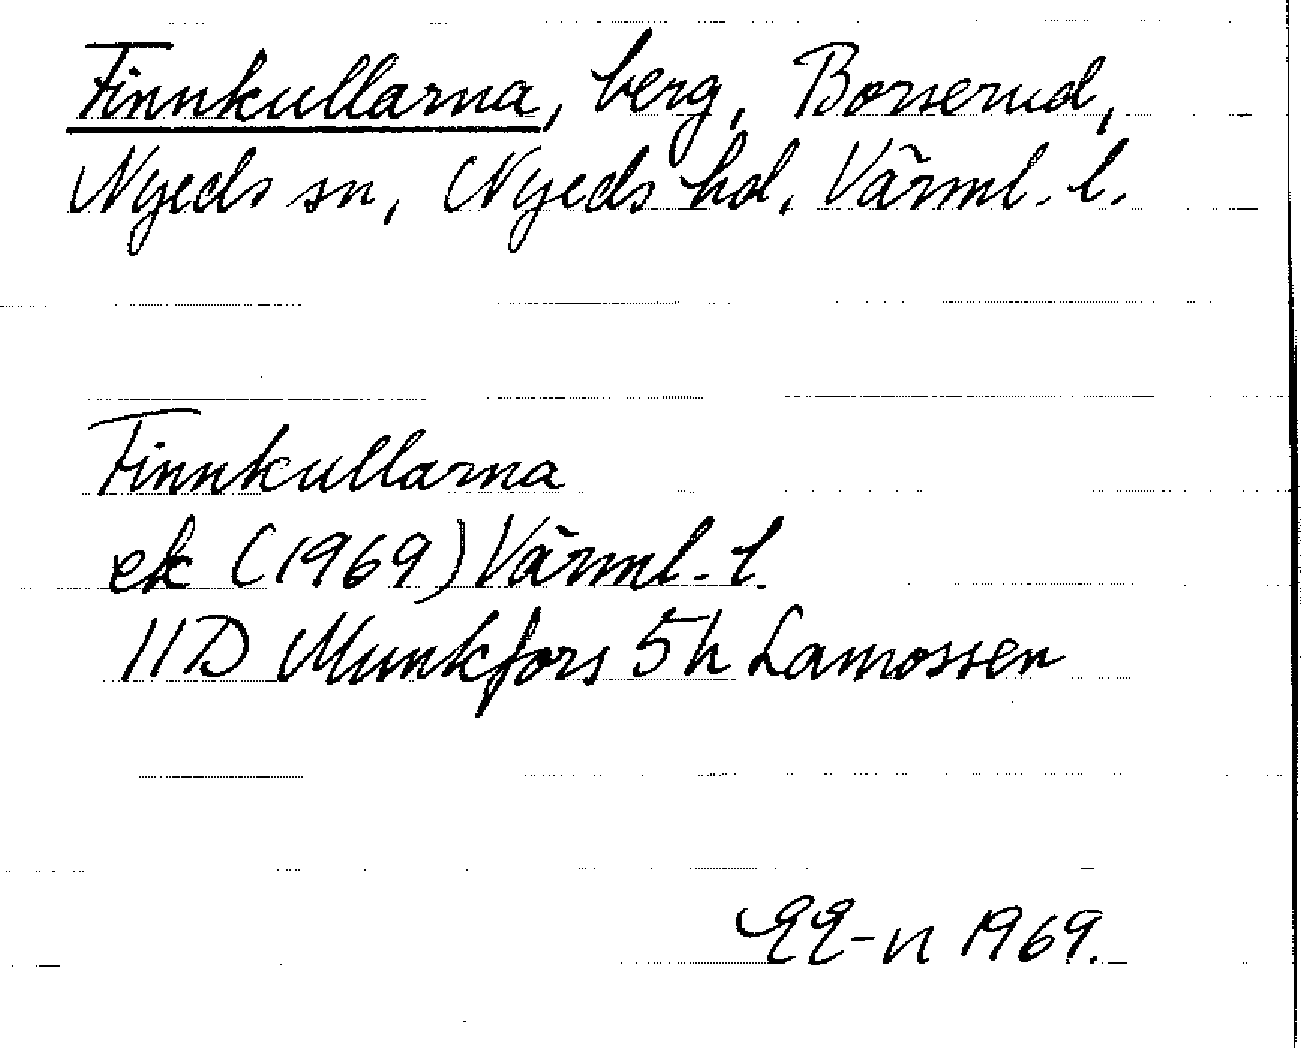 Finnkullarna, berg, Borserud,
Nyeds sn, Nyeds hd, Värml. l.
Finnkullarna
ek (1969) Värml. l.
11D Munkfors 5h Lamossen
EE-n 1969.